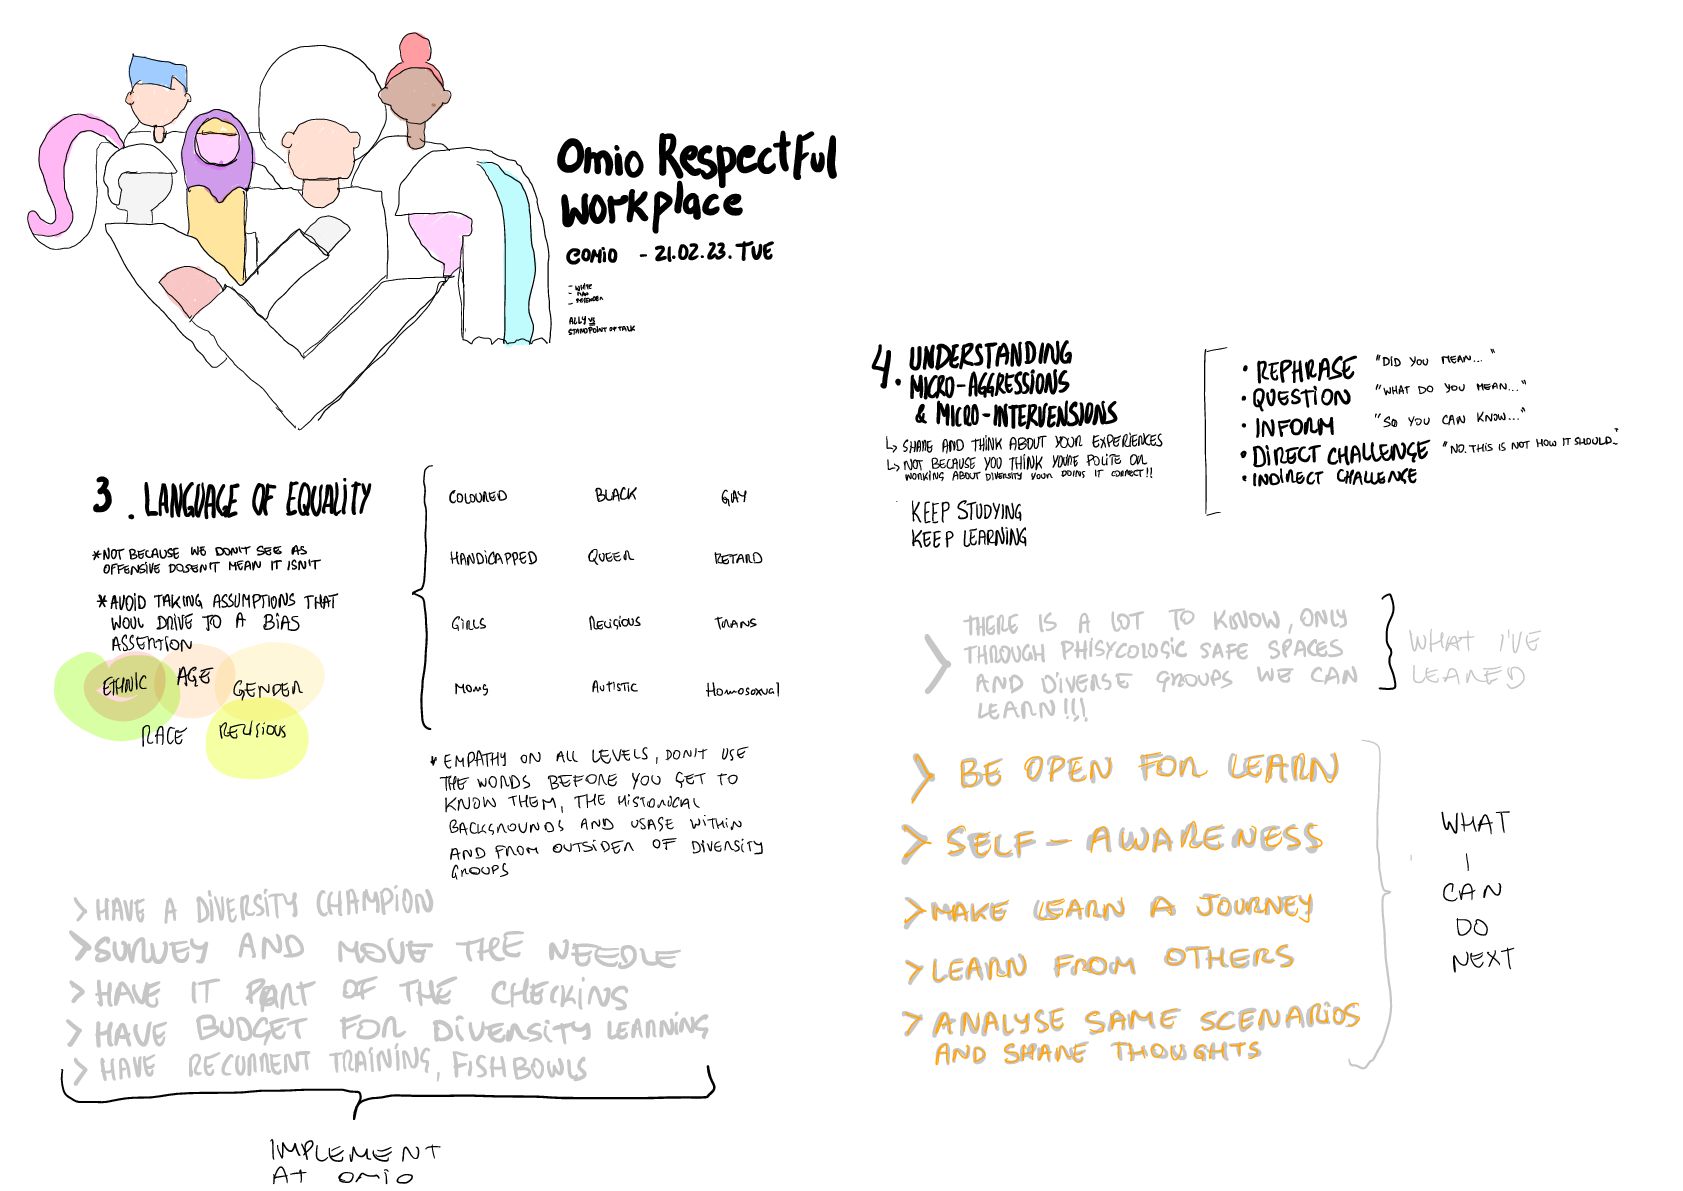 Omio Respectful
Workplace
COMIO - 21.02.23. TUE
- WHITE
- MAN
ALLY VS
STANDPOINT OF TALK
3. LANGUAGE OF EQUALITY
*NOT BECAUSE WE DON'T SEE AS
OFFENSIVE DOSEN'T MEAN IT ISN'T
*AVOID TAKING ASSUMPTIONS THAT
WOUL DRIVE TO A BIAS
ASSERTION
ETHNIC AGE GENDER
RACE RELIGIOUS
COLOURED BLACK GAY
HANDICAPPED QUEER RETARD
GIRLS RELIGIOUS TRANS
MONG AUTISTIC Homosexual
* EMPATHY ON ALL LEVELS, DON'T USE
THE WORDS BEFORE YOU GET TO
KNOW THEM, THE HISTORICAL
BACKGROUNDS AND USAGE WITHIN
AND FROM OUTSIDER OF DIVERSITY
GROUPS
> HAVE A DIVERSITY CHAMPION
> SURVEY AND MOVE THE NEEDLE
> HAVE IT PART OF THE CHECKINS
> HAVE BUDGET FOR DIVERSITY LEARNING
> HAVE RECURRENT TRAINING, FISHBOWLS
IMPLEMENT
AT OMIO
4. UNDERSTANDING
MICRO-AGGRESSIONS
& MICRO-INTERVENSIONS
↳ SHARE AND THINK ABOUT YOUR EXPERIENCES
↳ NOT BECAUSE YOU THINK YOU'RE POLITE OR
WORKING ABOUT DIVERSITY YOUR DOING IT CORRECT!!
KEEP STUDYING
KEEP LEARNING
• REPHRASE "DID YOU MEAN..."
• QUESTION "WHAT DO YOU MEAN..."
• INFORM "SO YOU CAN KNOW..."
• DIRECT CHALLENGE "NO. THIS IS NOT HOW IT SHOULD.."
• INDIRECT CHALLENGE
> THERE IS A LOT TO KNOW, ONLY
THROUGH PHISYCOLOGIC SAFE SPACES
AND DIVERSE GROUPS WE CAN
LEARN!!!
WHAT I'VE
LEARNED
> BE OPEN FOR LEARN
> SELF-AWARENESS
> MAKE LEARN A JOURNEY
> LEARN FROM OTHERS
> ANALYSE SAME SCENARIOS
AND SHARE THOUGHTS
WHAT
I
CAN
DO
NEXT